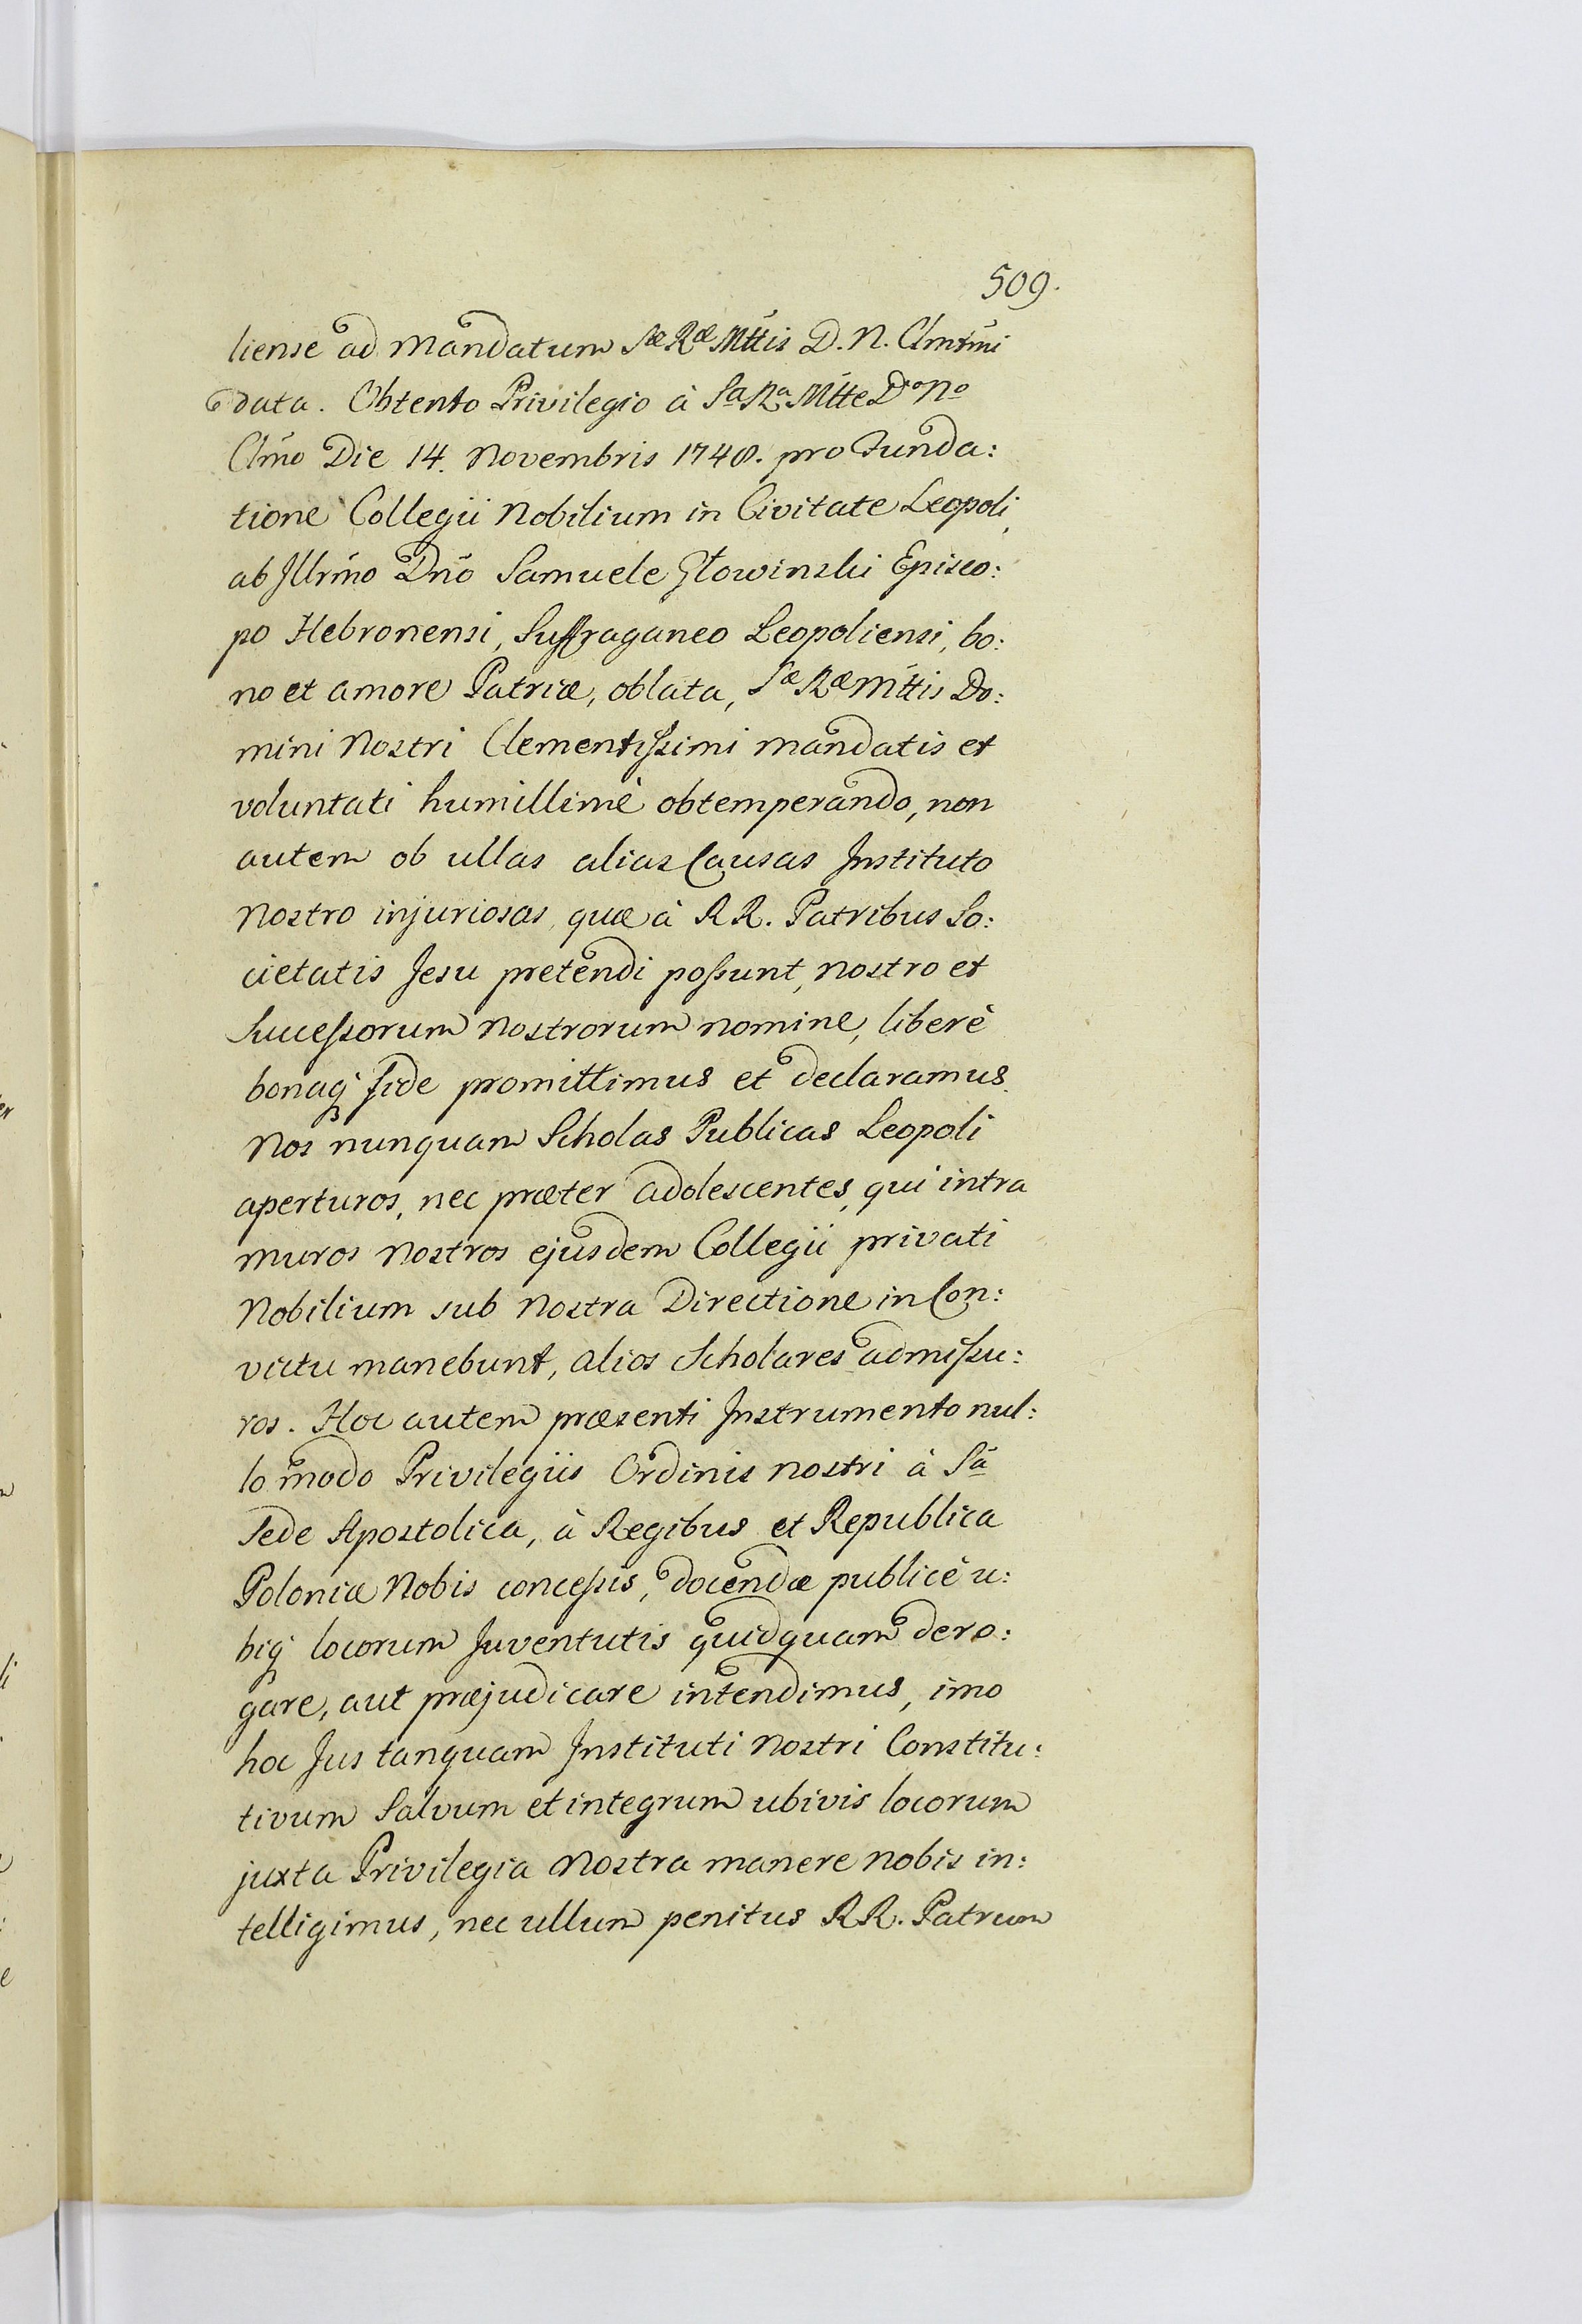 509.
liense ad Mandatum Sæ Ræ Mttis D. N. Clmtmi
data. Obtento Privilegio à Sa Ra Mtte Do No
Clmo Die 14. Novembris 1748. pro Funda:
tione Collegii Nobilium in Civitate Leopoli,
ab Illrmo Dno Samuele Głowinski Episco:
po Hebronensi, Suffraganeo Leopoliensi, bo:
no et amore Patriæ, oblata, Sæ Ræ Mttis Do:
mini Nostri Clementissimi mandatis et
voluntati humillimè obtemperando, non
autem ob ullas alias Causas Instituto
Nostro injuriosas, quæ à RR. Patribus So:
cietatis Jesu pretendi possunt, nostro et
Successorum Nostrorum nomine, liberè
bonaq; fide promittimus et declaramus.
Nos nunquam Scholas Publicas Leopoli
aperturos, nec præter adolescentes, qui intra
muros nostros ejusdem Collegii privati
Nobilium sub Nostra Directione in Con:
victu manebunt, alios Scholares admissu:
ros. Hoc autem præsenti Instrumento nul:
lo modo Privilegiis Ordinis nostri à Sa
Sede Apostolica, à Regibus et Republica
Poloniæ Nobis concessis, docendæ publicè u:
biq; locorum Juventutis quidquam dero:
gare, aut præjudicare intendimus, imo
hoc Jus tanquam Instituti Nostri Constitu:
tivum Salvum et integrum ubivis locorum
juxta Privilegia Nostra manere nobis in:
telligimus, nec ullum penitus RR. Patrum